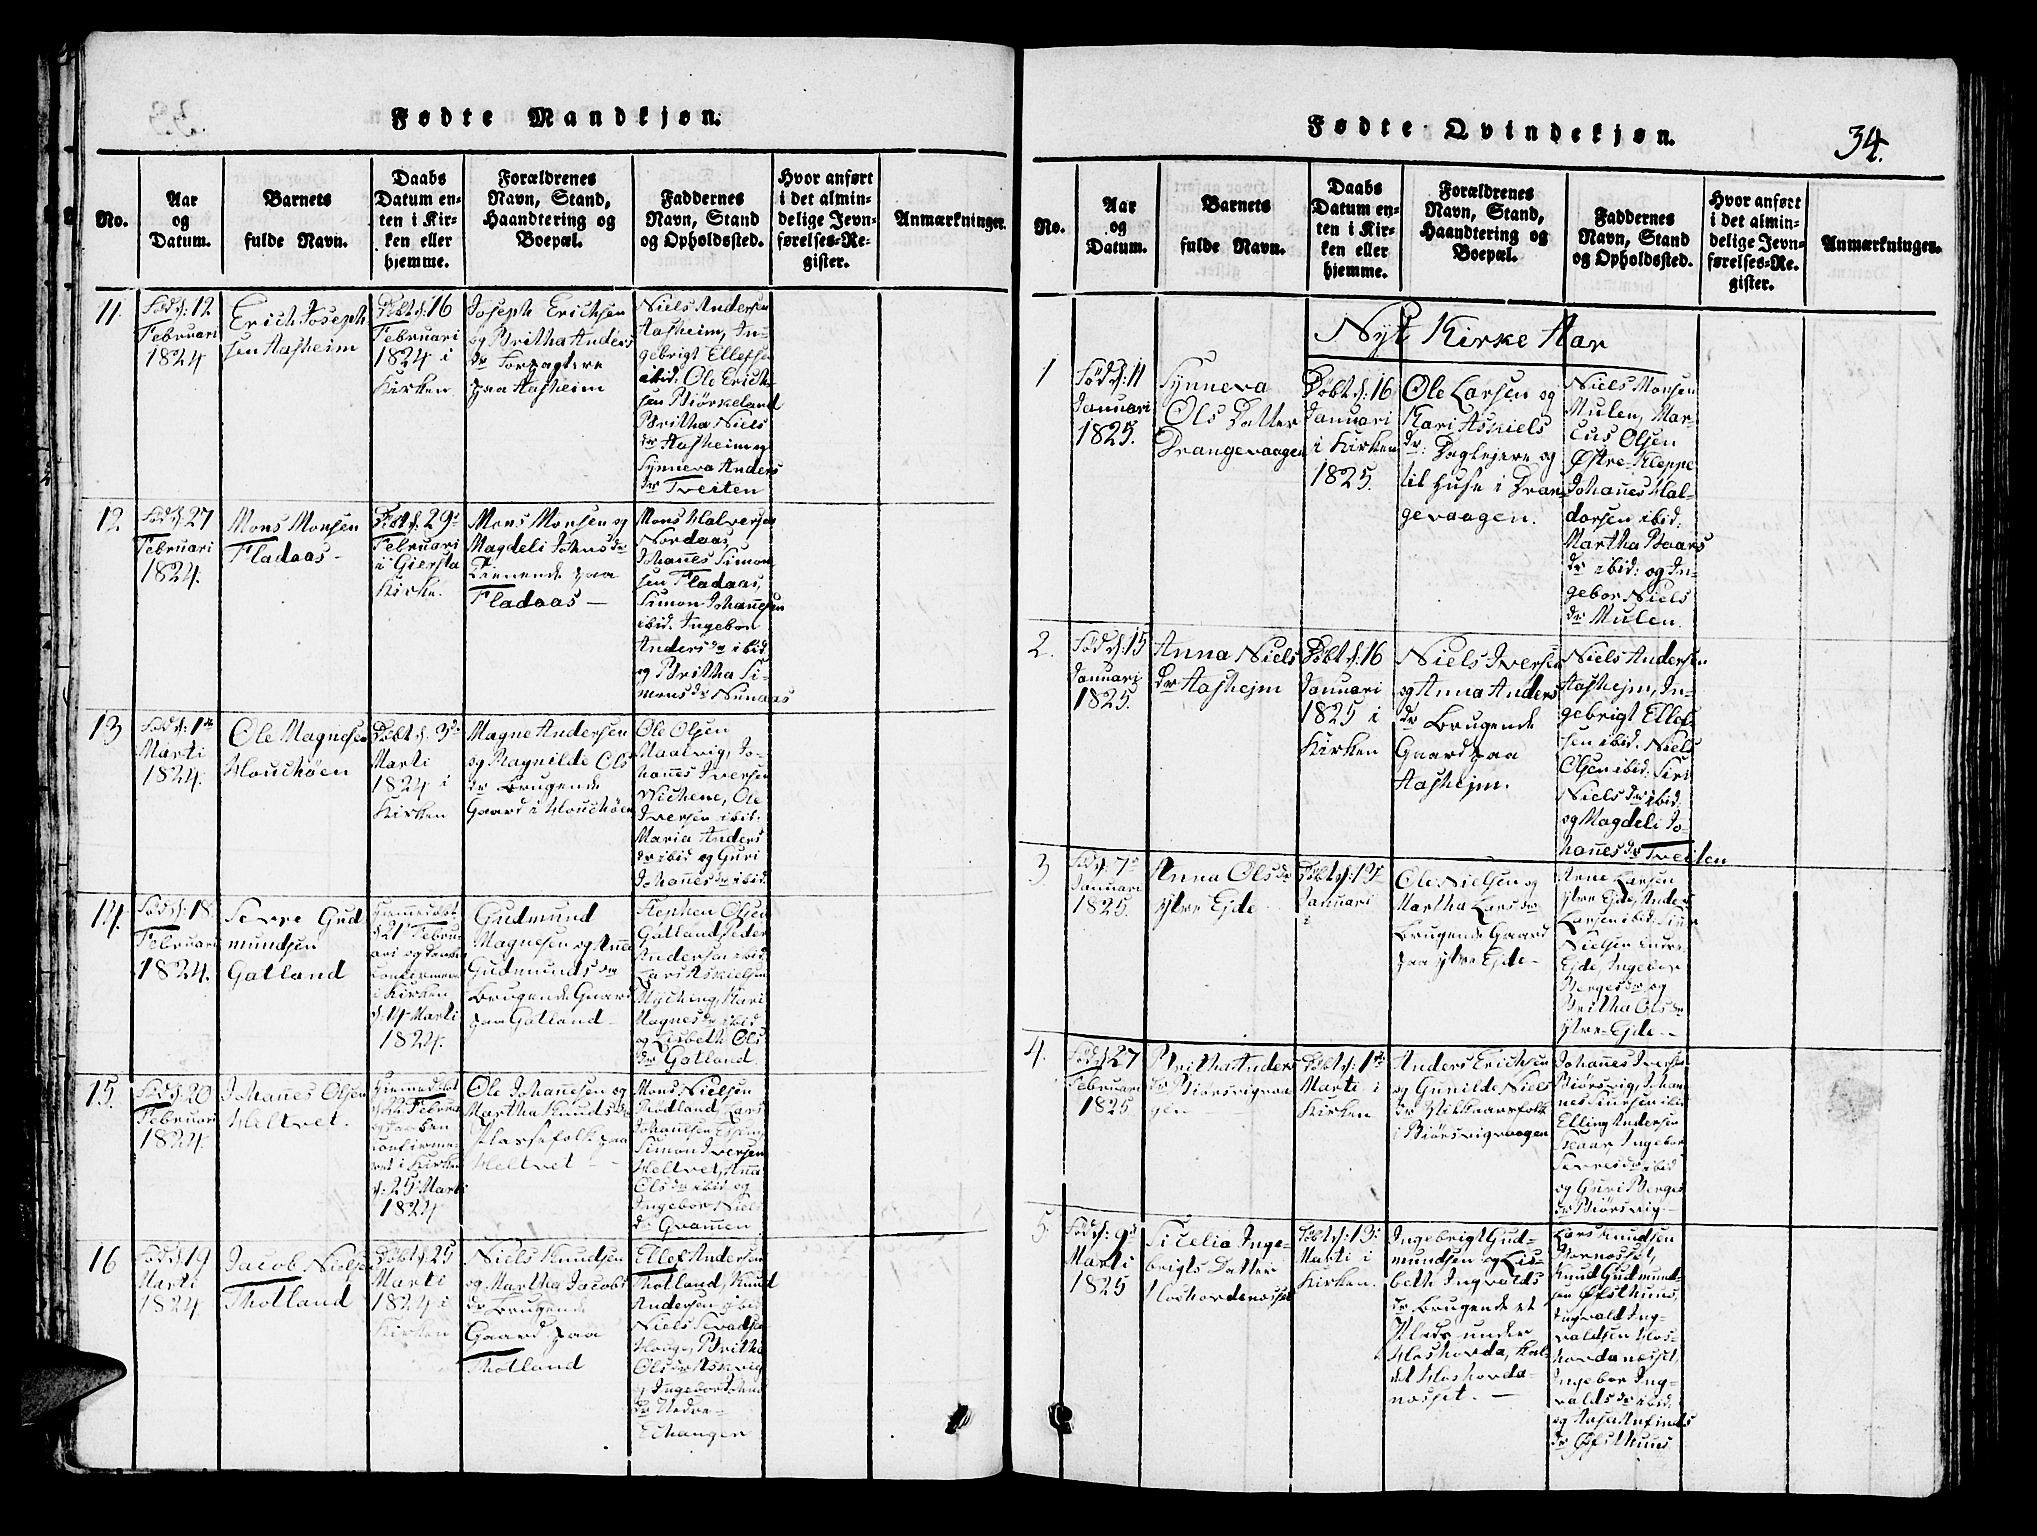 Fødte Mandkjøn.
No.
Aar
og
Datum.
Barnets
fulde Navn.
Daabs
Datum en-
ten i Kir-
ken eller
hjemme.
Forældrenes
Navn, Stand,
Haandtering og
Boepæl.
Faddernes
Navn, Stand
og Opholdssted.
Hvor anført
i det almin-
delige Jevn-
førelses-Re-
gister.
Anmærkninger.
11.
Fød d: 12
Februari
1824
Erich Joseph
sen Aasheim
Døbt d: 16
Februari
1824 i
Kirken
Joseph Erichsen
og Britha Anders
dr Forpagtere
paa Aasheim
Niels Andersen
Aasheim, In-
gebrigt Ellefsen
ibid: Ole Erich-
sen Biørkeland
Britha Niels
dr Aasheim og
Synneva Anders
dr Tveiten
12.
Fød d: 27
Februari
1824.
Mons Monsen
Fladaas -
Døbt d: 29
Februari
i Giersta
Kirke.
Mons Monsen og
Magdeli Johns dr
Tienende paa
Fladaas -
Mons Halversen
Nordaas
Johanes Simon
sen Fladaas,
Simon Johannesen
ibid. Ingebor
Anders dr ibid
og Britha Si-
mons dr Nunaas
13
Fød d: 1te
Marti
1824.
Ole Magnesen
Houchøen
Døbt d: 3de
Marti
1824 i
Kirken
Magne Andersen
og Ragnilde Ols
dr Brugende
Gaard i Houchøen
Ole Olsen
Maalvig, Jo-
hanes Iversen
Wichene, Ole
Iversen ibid.
Maria Anders
dr ibid og Guri
Johanes dr ibid.
14.
Fød d: 18
Februari
1824.
Severe Gud
mundsen
Gatland
Hiemmedøbt
d 21 Febru-
ari og derpaa
confirmeret
i Kirken
d: 14 Marti
1824.
Gudmund
Magnesen og Anna
Gudmunds dr
Brugende Gaard
paa Gatland -
Stephen Olsen
Gatland Peder
Andersen ibid
Lars Askielsen
Myching, Kari
Magnes dr ibid
og Lisbeth Ols
dr Gatland
15.
Fød d 20
Februari
1824.
Johanes Olsen
Heltvet.
Hiemmedøbt
d 22 Februa
confirme-
ret i Kirken
d: 25 Marti
1824
Ole Johannesen og
Martha Knuds dr
Plassefolk paa
Heltvet -
Mons Nielsen
Rødland, Lars
Johannesen
Simon Iversen
Heltvet, Anna
Ols dr ibid og
Ingebor Niels
dr Grammen
16
Fød d: 19
Marti
1824
Jacob Nielsen
Thotland
Døbt d: 25
Marti
1824 i
Kirken
Niels Knudsen
og Martha Jacobs
dr Brugende
Gaard paa
Thotland
Ellef Andersen
Thotland, Knud
Andersen ibid
Niels Sevadsen
Houge, Britha
Ols dr Askvig
og Ingebor Johns
dr Nedre-
Echanger
Fødte Qvindekjøn.
34.
No.
Aar
og
Datum.
Barnets
fulde Navn.
Daabs
Datum en-
ten i Kir-
ken eller
hjemme.
Forældrenes
Navn, Stand,
Haandtering og
Boepæl.
Faddernes
Navn, Stand
og Opholdssted.
Hvor anført
i det almin-
delige Jevn-
førelses-Re-
gister.
Anmærkninger.
Nyt Kirke Aar
1
Fød d: 11
Januari
1825.
Synneva
Ols Datter
Drangevaagen
Døbt d: 16
Januari
i Kirken
1825.
Ole Larsen og
Kari Askiels
dr: Daglejere og
til Huse i Dran
gevaagen.
Niels Monsen
Mulen, Mar-
cus Olsen
Østre-Kleppe
Johanes Hal-
dorsen ibid:
Martha Baars
dr ibid: og In-
gebor Niels
dr Mulen.
2.
Fød d: 15
Januari
1825.
Anna Niels
dr Aashejm
Døbt d: 16
Januari
1825 i
Kirken
Niels Iversen
og Anna Anders
dr Brugende
Gaard paa
Aashejm.
Niels Andersen
Aashejm, In-
gebrigt Ellef
sen ibid. Niels
Olsen ibid: Siri
Niels dr ibid.
og Magdeli Jo-
hanes dr Tveiten
3
Fød d. 7de
Januari
1825.
Anna Ols dr
ytre Ejde -
Døbt d: 13
Januari
Ole Nielsen og
Martha Lars dr
Brugende Gaard
paa ytre Ejde -
Arne Larsen
ytre Ejde, Anders
Larsen ibid
Nielsen indre
Ejde, Ingebor
Berges dr og
Britha Ols dr
ytre Ejde -
4.
Fød d. 27
Februari
1825
Britha Anders
dr Biørsvigvaa
gen
Døbt d: 1te
Marti i
Kirken
Anders Erichsen
og Gunilde Niels
dr Vilkaarsfolk
i Biørsvigvaagen
Johanes Iversen
Biørsvig, Johan
nes ibid
Elling Andersen
Ingebor
Severes dr ibid
og Guri Berges
dr Biørsvig -
5.
Fød d: 9de
Marti
1825
Sicelia Inge-
brigts Datter
Hoshovdenosset
Døbt d: 13
Marti i
Kirken.
Ingebrigt Gud-
mundsen og Lis-
beth Ingvalds
dr Brugende et
Plads under
Hoshovda, kal
det Hoshovda-
nosset. -
Lars Knudsen
Knud Gudmund-
sen Øfsthuus,
Ingvald Ing-
valdsen Hos-
hovdanosset,
Ingebor Ing-
valds dr ibid
og Aasa Anfinds
dr Øfsthuus